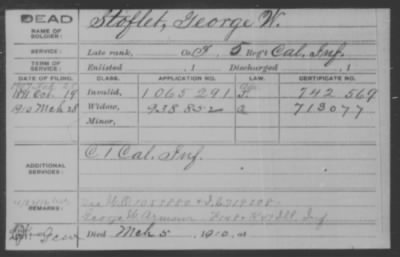 DEAD
NAME OF SOLDIER: Stoflet, George W.
SERVICE: Late rank, Co. I 5 Reg't Cal. Inf.
TERM OF SERVICE: Enlisted , 1 Discharged , 1
DATE OF FILING. CLASS. APPLICATION NO. LAW. CERTIFICATE NO.
1891 Oct. 19 Invalid, 1065291 742 569
1910 Mch 28 Widow, 938852 a 713077
Minor,
ADDITIONAL SERVICES: C. 1 Cal. Inf.
REMARKS:
George W. Inf.
Died Mch 5 , 1910, at